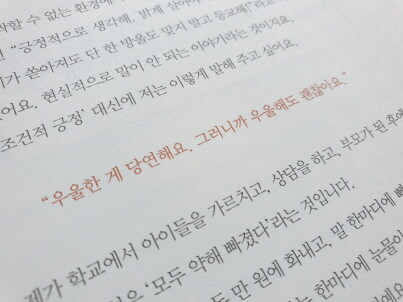 할 수 없는 환경에
“긍정적으로 생각해, 밝게
가 쏟아져도 단 한 방울도 맞지 말고 등교해!”라고
어요. 현실적으로 말이 안 되는 이야기라는 것이지요.
조건적 긍정’ 대신에 저는 이렇게 말해 주고 싶어요.
“우울한 게 당연해요. 그러니까 우울해도 괜찮아요.”
제가 학교에서 아이들을 가르치고, 상담을 하고, 부모가 된 후에
은 ‘모두 악해 빠졌다’라는 것입니다.
도 만 원에 화내고, 말 한마디에 빠
는 한마디에 눈물이